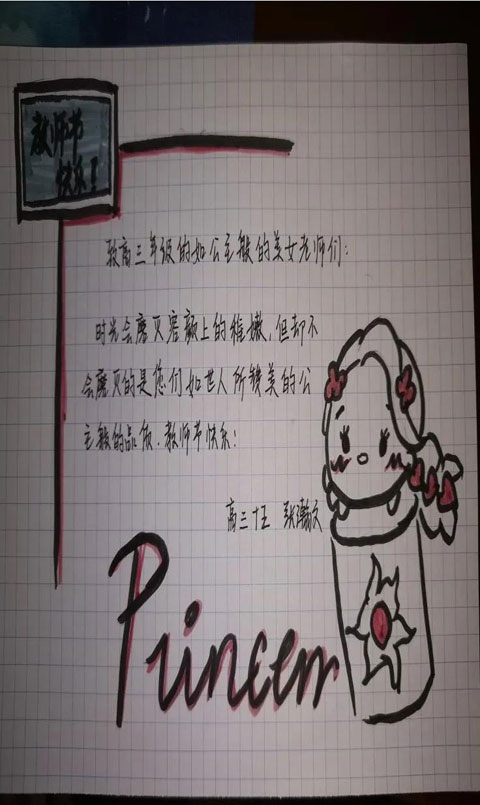 教师节
快乐！
致高三年级的如公主般的美女老师们：
时光会磨灭容颜上的稚嫩，但却不
会磨灭的是您们如世人所赞美的公
主般的品质．教师节快乐！
高三十五 张瀚文
Princess